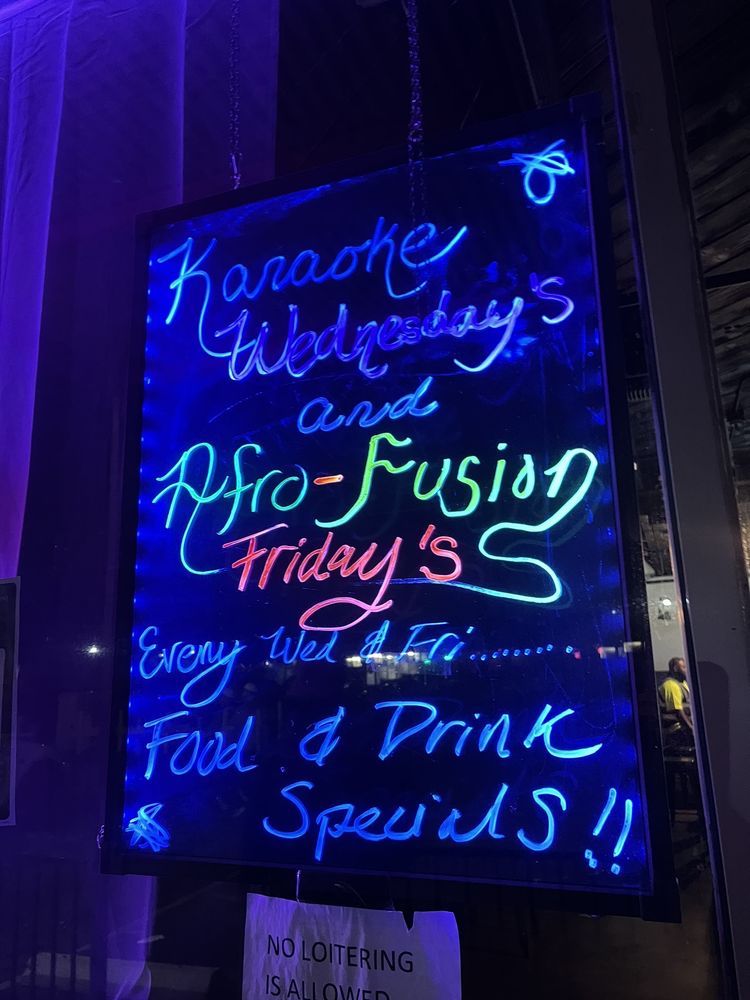 Karaoke
Wednesday's
and
Afro-Fusion
Friday's
Every Wed & Fri.........
Food & Drink
Specials!!
NO LOITERING
IS ALLOWED